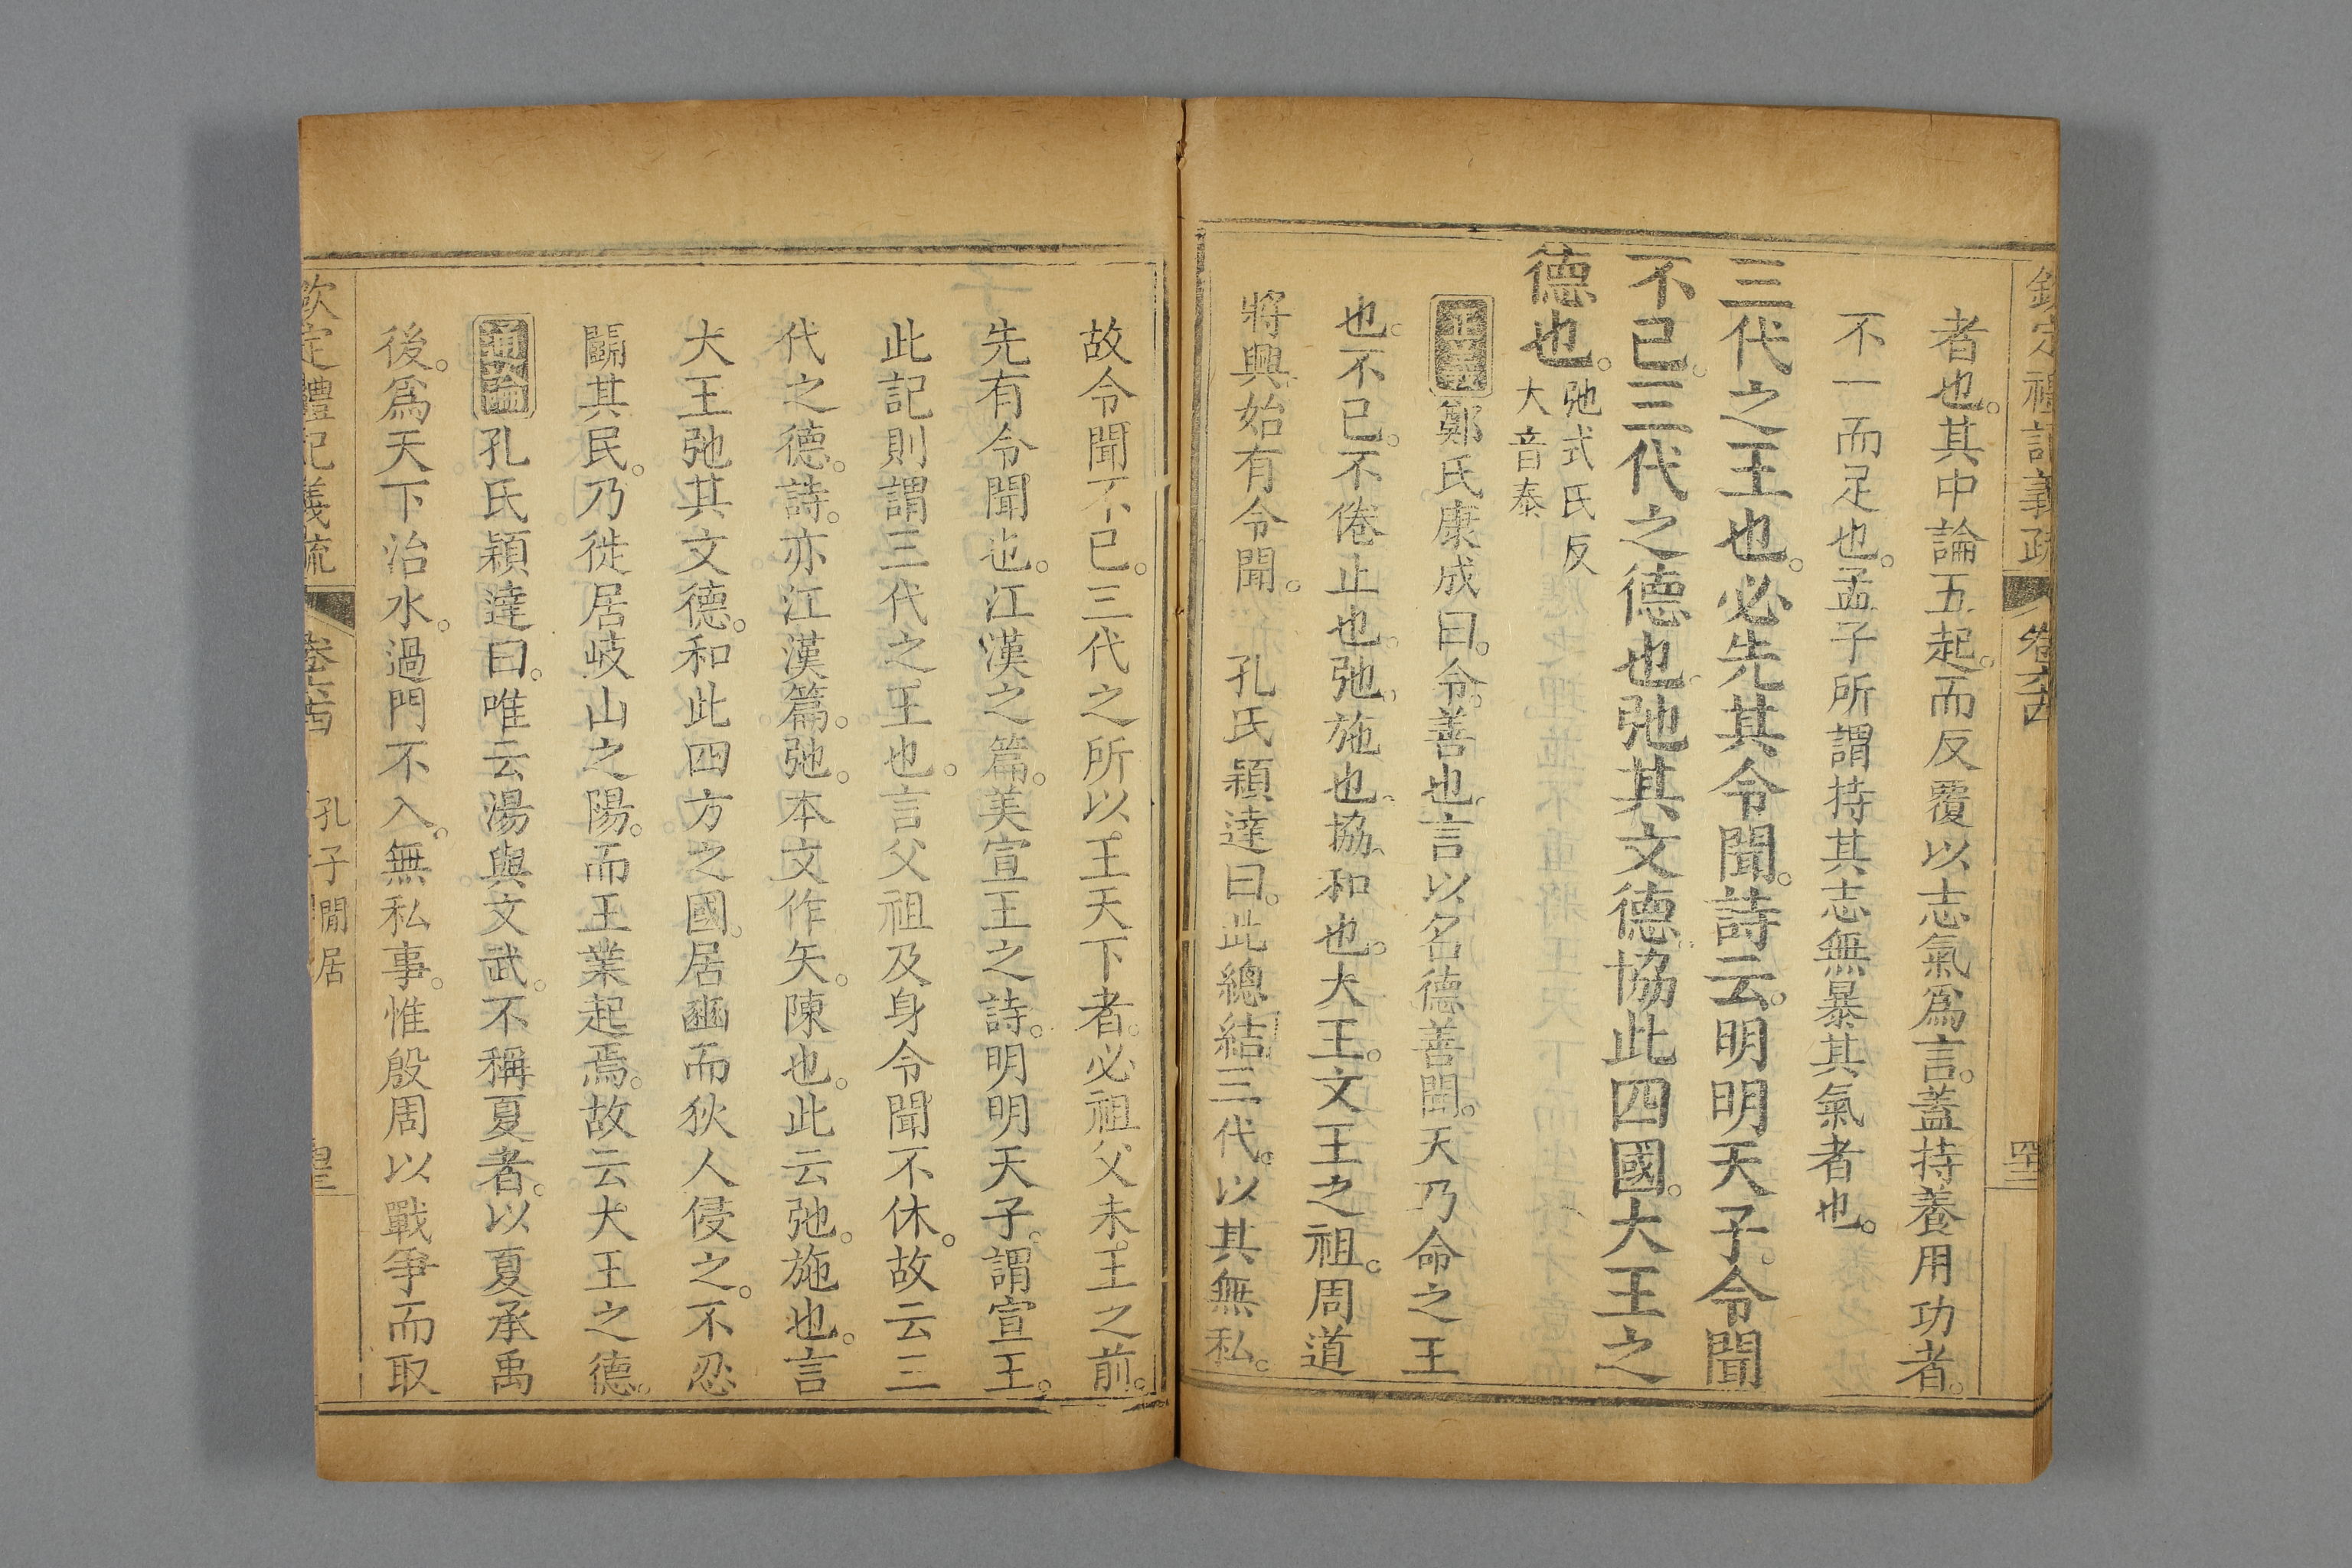 欽定禮記義疏 卷六十四 四三
者也。其中論五起。而反覆以志氣爲言。蓋持養用功者。
不一而足也。孟子所謂持其志無暴其氣者也。
三代之王也。必先其令聞。詩云。明明天子。令聞
不已。三代之德也。弛其文德。協此四國。大王之
德也。弛式氏反
大音泰
正義鄭氏康成曰。令。善也。言以名德善聞。天乃命之王
也。不已。不倦止也。弛。施也。協。和也。大王。文王之祖。周道
將興。始有令聞。 孔氏穎達曰。此總結三代。以其無私。
故令聞不已。三代之所以王天下者。必祖父未王之前。
先有令聞也。江漢之篇。美宣王之詩。明明天子。謂宣王。
此記則謂三代之王也。言父祖及身令聞不休。故云三
代之德。詩。亦江漢篇。弛。本文作矢。陳也。此云弛。施也。言
大王弛其文德。和此四方之國。居豳而狄人侵之。不忍
鬭其民。乃徙居岐山之陽。而王業起焉。故云大王之德。
通論孔氏穎達曰。唯云湯與文武。不稱夏者。以夏承禹
後。爲天下治水。過門不入。無私事。惟殷周以戰爭而取
欽定禮記義疏 卷六十四 孔子閒居